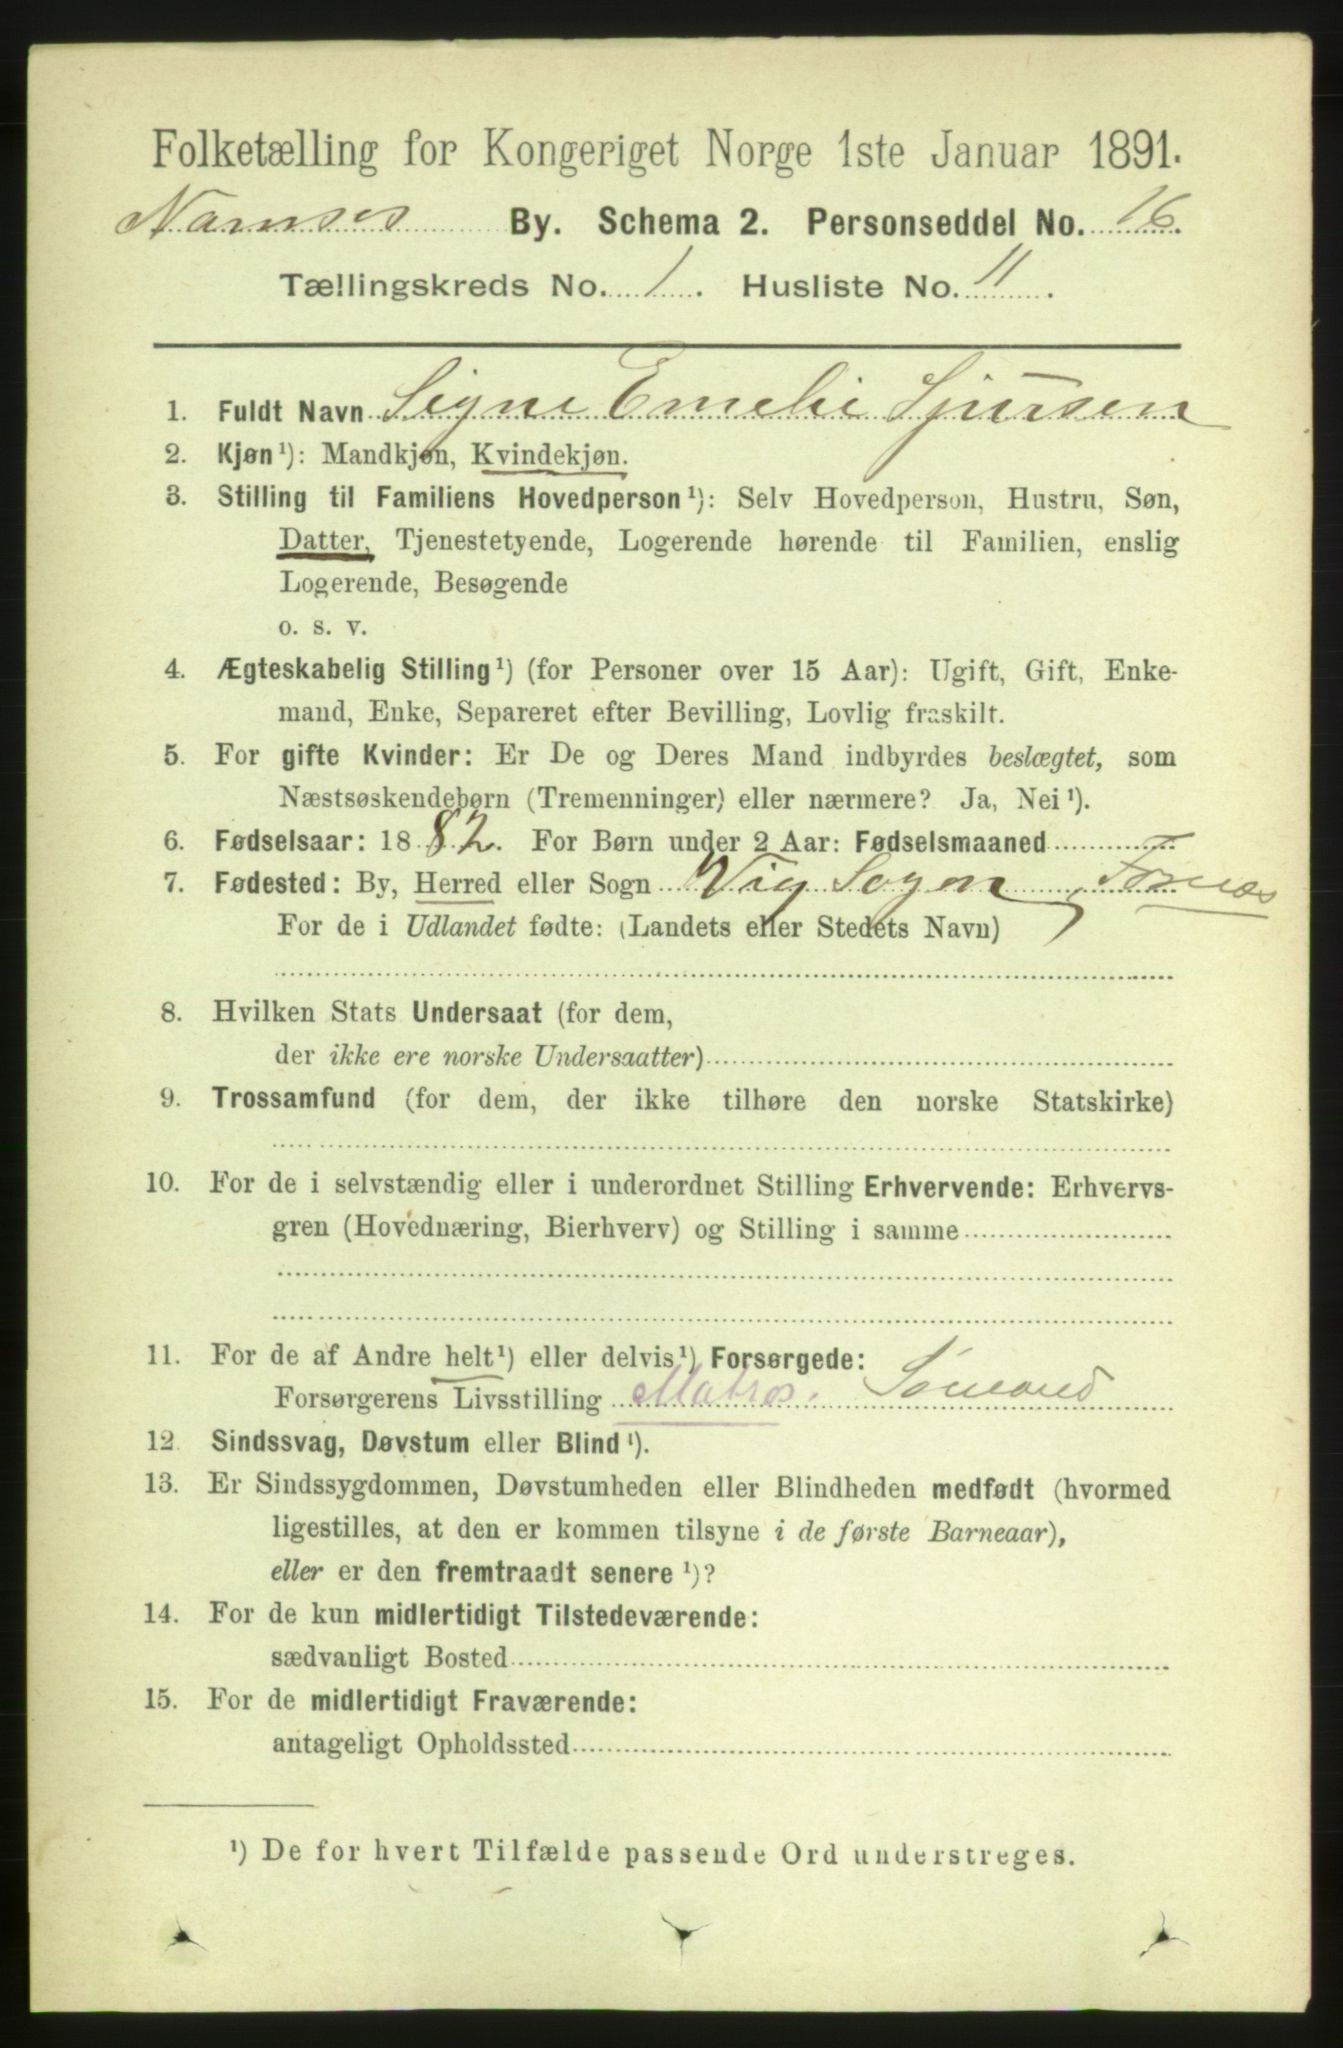 Folketælling for Kongeriget Norge 1ste Januar 1891.
Namsos By. Schema 2. Personseddel No. 16.
Tællingskreds No. 1. Husliste No. 11.
1. Fuldt Navn Signe Emelie Sjursen
2. Kjøn¹): Mandkjøn, Kvindekjøn.
3. Stilling til Familiens Hovedperson¹): Selv Hovedperson, Hustru, Søn,
Datter, Tjenestetyende, Logerende hørende til Familien, enslig
Logerende, Besøgende
o. s. v.
4. Ægteskabelig Stilling¹) (for Personer over 15 Aar): Ugift, Gift, Enke-
mand, Enke, Separeret efter Bevilling, Lovlig fraskilt.
5. For gifte Kvinder: Er De og Deres Mand indbyrdes beslægtet, som
Næstsøskendebørn (Tremenninger) eller nærmere? Ja, Nei¹).
6. Fødselsaar: 1882. For Børn under 2 Aar: Fødselsmaaned
7. Fødested: By, Herred eller Sogn Vig Sogn, Fosnæs
For de i Udlandet fødte: (Landets eller Stedets Navn)
8. Hvilken Stats Undersaat (for dem,
der ikke ere norske Undersaatter)
9. Trossamfund (for dem, der ikke tilhøre den norske Statskirke)
10. For de i selvstændig eller i underordnet Stilling Erhvervende: Erhvervs-
gren (Hovednæring, Bierhverv) og Stilling i samme
11. For de af Andre helt¹) eller delvis¹) Forsørgede:
Forsørgerens Livsstilling Matros. Sømand
12. Sindssvag, Døvstum eller Blind¹).
13. Er Sindssygdommen, Døvstumheden eller Blindheden medfødt (hvormed
ligestilles, at den er kommen tilsyne i de første Barneaar),
eller er den fremtraadt senere ¹)?
14. For de kun midlertidigt Tilstedeværende:
sædvanligt Bosted
15. For de midlertidigt Fraværende:
antageligt Opholdssted
¹) De for hvert Tilfælde passende Ord understreges.